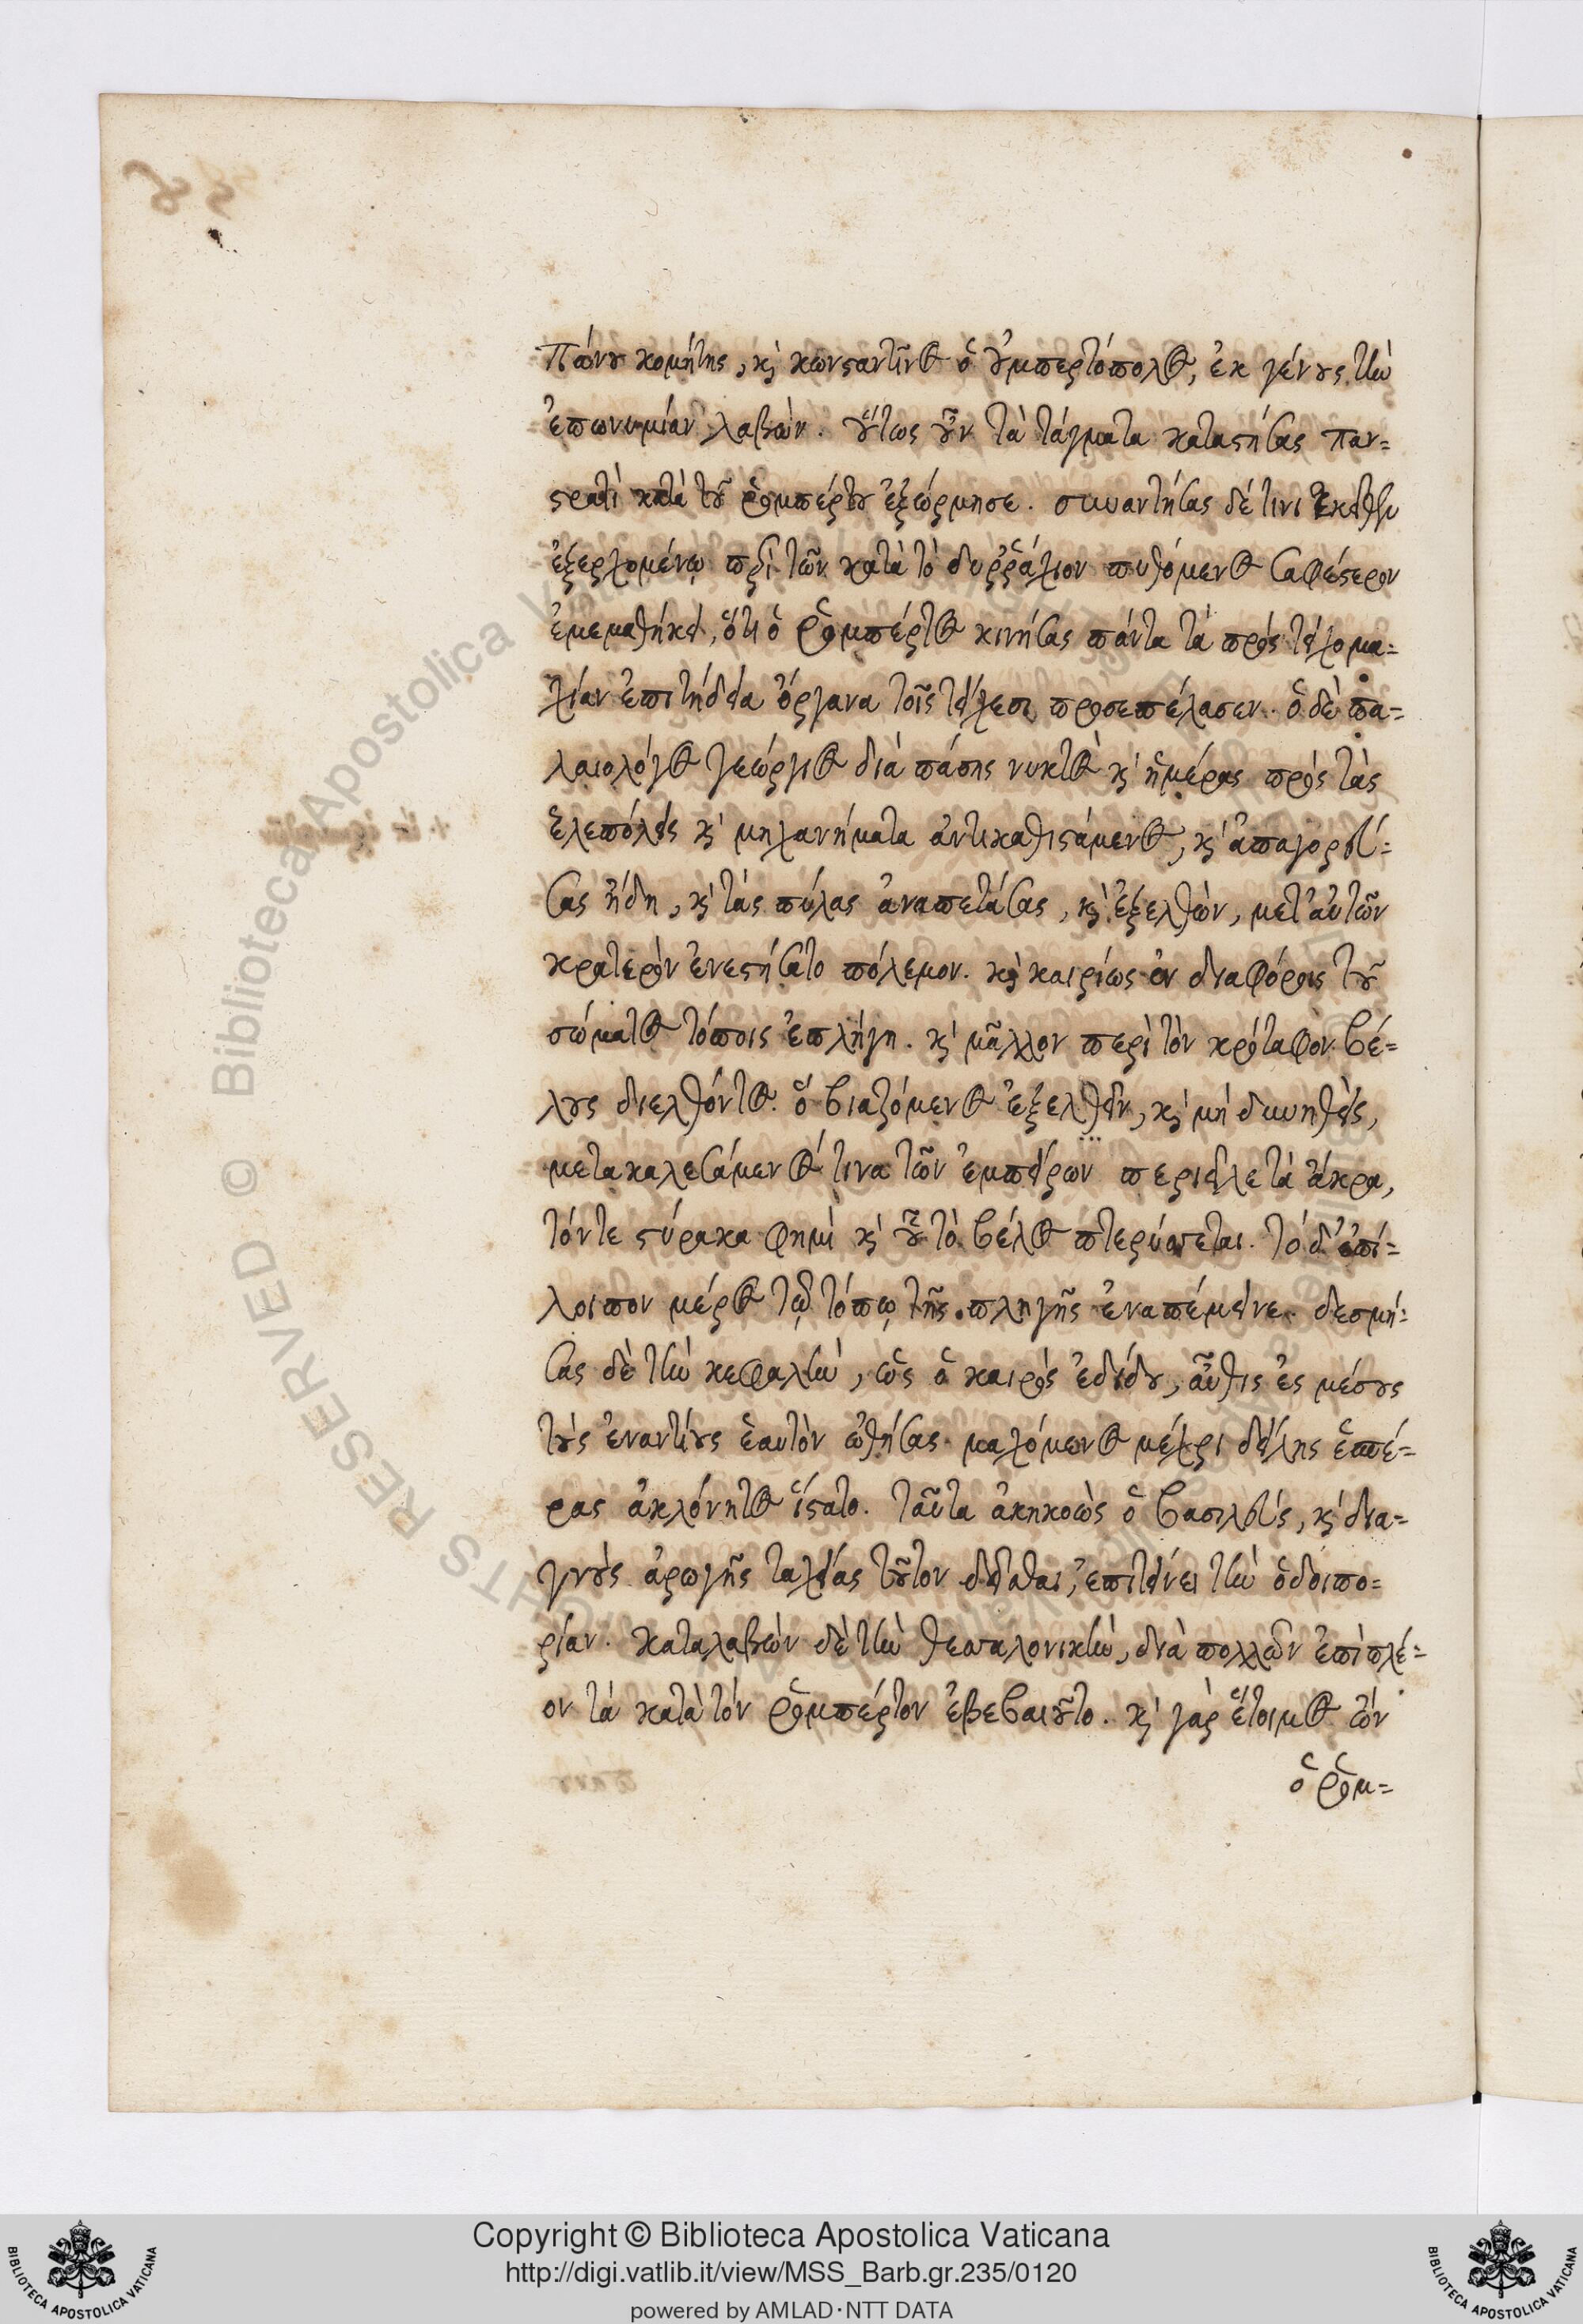 πάνου κομήτης, κỳ κωνσταντῖνος ὁ οὐμπερτόπολος, ἐκ γένους τὴν
ἐπωνυμίαν λαβών. οὕτως οὖν τὰ τάγματα καταστήσας παν=
στρατὶ κατὰ τοῦ ῥομπέρτου ἐξώρμησε. συναντήσας δέ τινι ἐκεῖθεν
ἐξερχομένῳ περὶ τῶν κατὰ τὸ δυῤῥάχιον πυθόμενος σαφέστερον
ἐμεμαθήκει, ὅτι ὁ ῥομπέρτος κινήσας πάντα τὰ πρὸς τειχομα=
χίαν ἐπιτήδεια ὄργανα τοῖς τείχεσι προσεπέλασεν. ὁ δὲ πα=
λαιολόγος γεώργιος διὰ πάσης νυκτὸς κỳ ἡμέρας πρὸς τὰς
ἑλεπόλεις κỳ μηχανήματα ἀντικαθιστάμενος, κỳ ἀπαγορεύ=
σας ἤδη, κỳ τὰς πύλας ἀναπετάσας, κỳ ἐξελθὼν, μετ' αὐτῶν
κρατερὸν ἐνεστήσατο πόλεμον. κỳ καιρίως ἐν διαφόροις τοῦ
σώματος τόποις ἐπλήγη. κỳ μᾶλλον περὶ τὸν κρόταφον βέ=
λους διελθόντος. ὃ βιαζόμενος ἐξελθεῖν, κỳ μὴ δυνηθεὶς,
μετακαλεσάμενός τινα τῶν ἐμπείρων περιεῖλε τὰ ἄκρα,
τόν τε στύρακα φημὶ κỳ οὗ τὸ βέλος πτερύσσεται. τὸ δ' ἐπί=
λοιπον μέρος τῷ τόπῳ τῆς πληγῆς ἐναπέμεινε. δεσμή=
σας δὲ τὴν κεφαλὴν, ὡς ὁ καιρὸς ἐδίδου, αὖθις ἐς μέσους
τοὺς ἐναντίους ἑαυτὸν ὠθήσας μαχόμενος μέχρι δείλης ἑσπέ=
ρας ἀκλόνητος ἵστατο. ταῦτα ἀκηκοὼς ὁ βασιλεὺς, κỳ δια=
γνοὺς ἀρωγῆς ταχείας τοῦτον δεῖσθαι, ἐπιτείνει τὴν ὁδοιπο=
ρίαν. καταλαβὼν δὲ τὴν θεσσαλονίκην, διὰ πολλῶν ἐπὶ πλέ=
ον τὰ κατὰ τὸν ῥομπέρτον ἐβεβαιοῦτο. κỳ γὰρ ἕτοιμος ὢν
ὁ ῥομ=
Copyright © Biblioteca Apostolica Vaticana
http://digi.vatlib.it/view/MSS_Barb.gr.235/0120
powered by AMLAD·NTT DATA